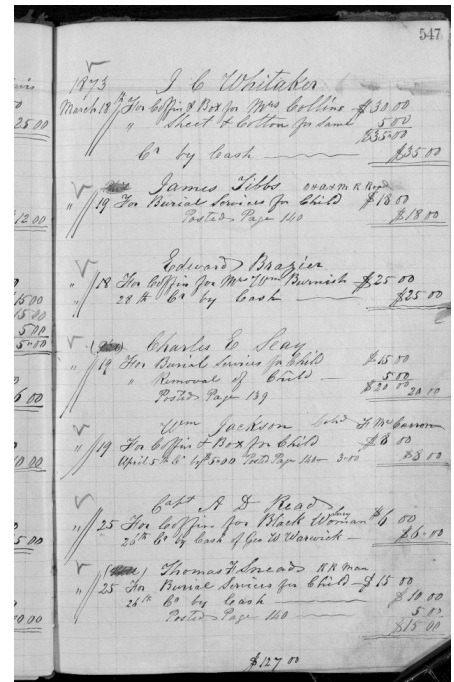 547
1873 J C Whitaker
March 18 For Coffin & Box for Mrs Collins $30.00
" Sheet & Cotton for same 5 00
$35.00
Cr by Cash $35.00
James Tibbs
" 19 For Burial Services for Child $18 00
Posted Page 140 $18 00
Edward Brazier
" 18 For Coffin for Mrs Wm Burnish $25 00
28th Cr by Cash $25 00
Charles E Seay
" 19 For Burial Services for Child $15 00
" Removal of Child 5 00
Posted Page 139 $20 00 20 00
Wm Jackson
" 19 For Coffin & Box for Child $8 00
April 5th Cr by 5.00 Posted Page 140 3.00 $8 00
Capt A D Read
" 25 For Coffin for Black Woman $6 00
26th Cr by Cash of Geo W Warwick $6.00
Thomas F Sneads R R Man
" 25 For Burial Services for Child $15 00
26th Cr by Cash $10 00
Posted Page 140 5 00
$15 00
$127 00
25 00
$12.00
15 00
15 00
5 00
5 00
6 00
10 00
5 00